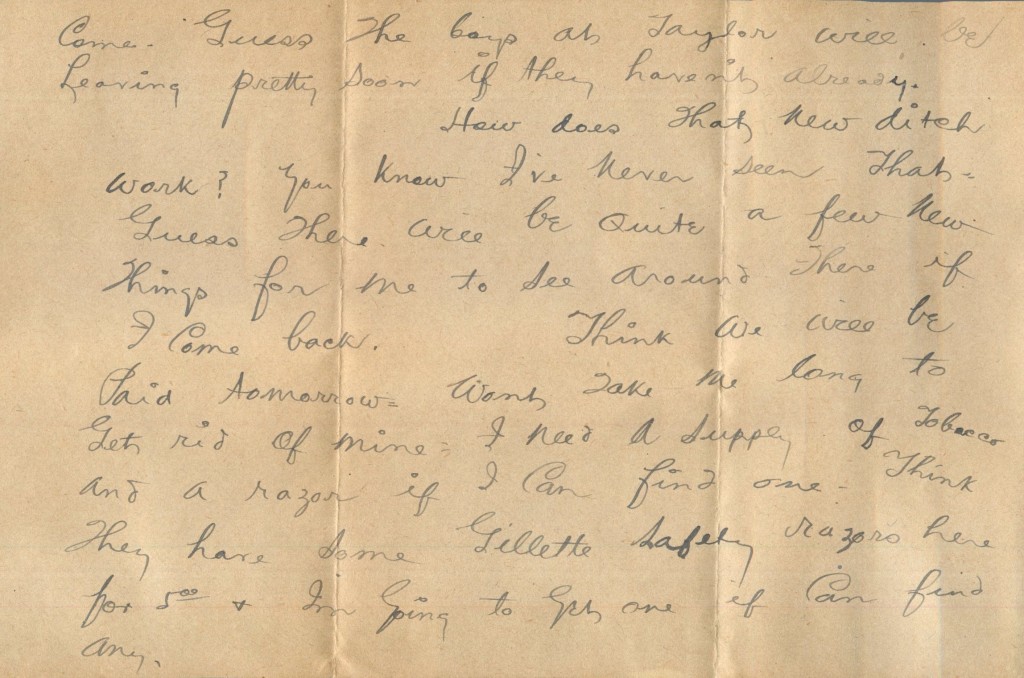 Come. Guess The boys at Taylor will be
Leaving pretty soon if they haven't already.
How does That New ditch
work? You Know I've Never seen That=
Guess There will be Quite a few New
Things for me to see Around There if
I Come back. Think we will be
Paid tomorrow= Wont Take me long to
Get rid Of mine= I Need A supply of Tobacco
And A razor if I Can find one- Think
They have some Gillette safety razors here
for 5⁰⁰ + Im Going to Get one if Can find
Any.